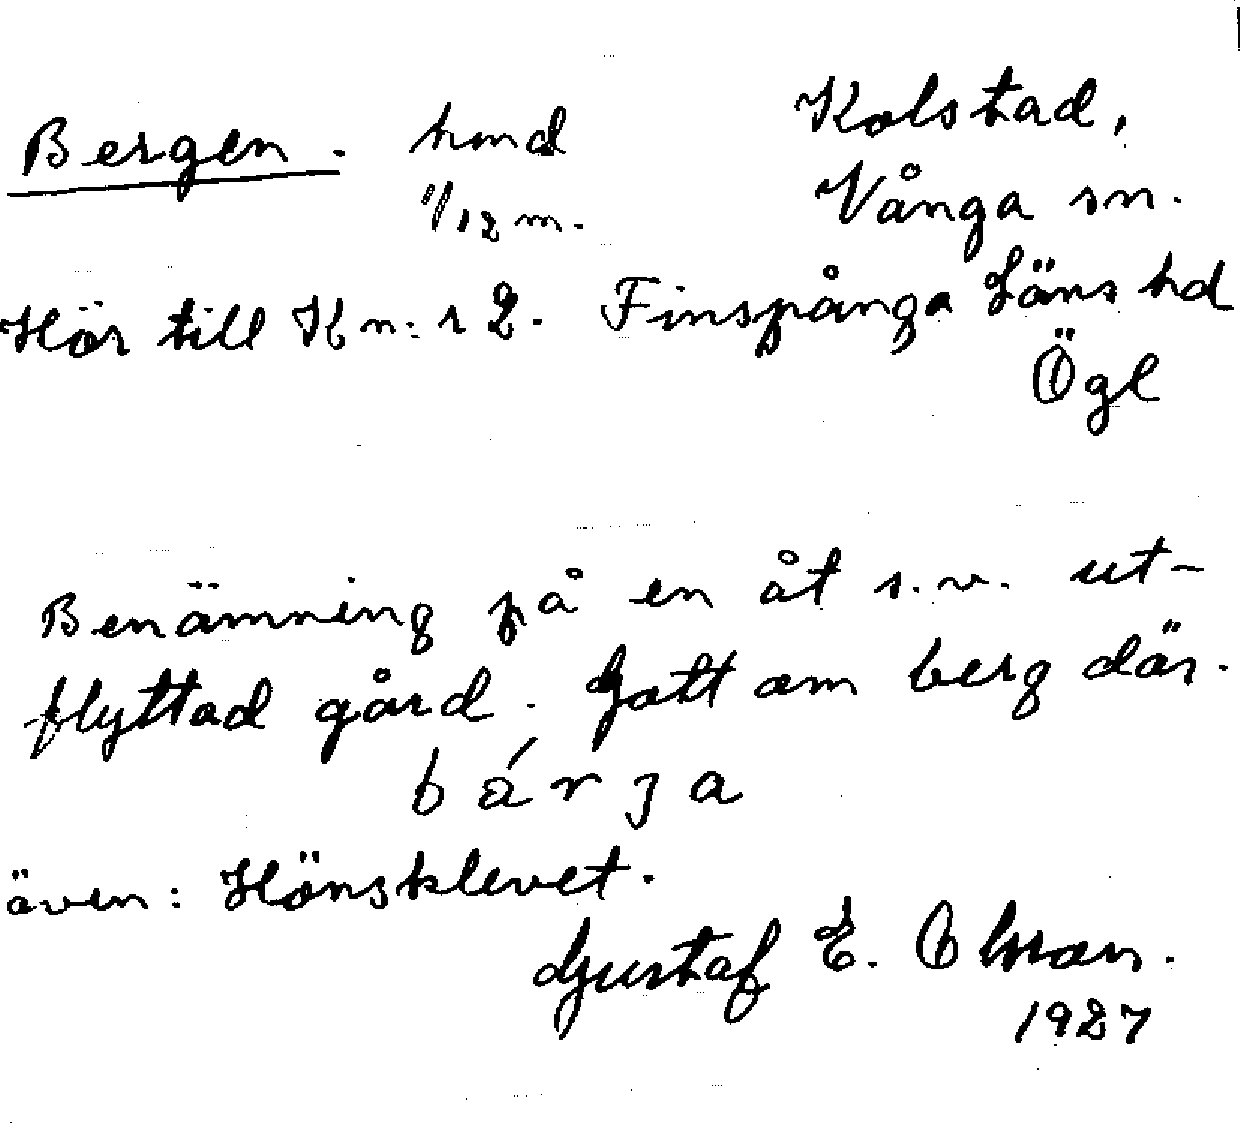 Bergen. hmd Kolstad,
1/12 m. Vånga sn.
Hör till K n:r 2. Finspånga Läns hd
Ögl
Benämning på en åt s.v. ut-
flyttad gård. Gott om berg där.
bárja
även: Hönsklevet.
Gustaf E. Olsson.
1927